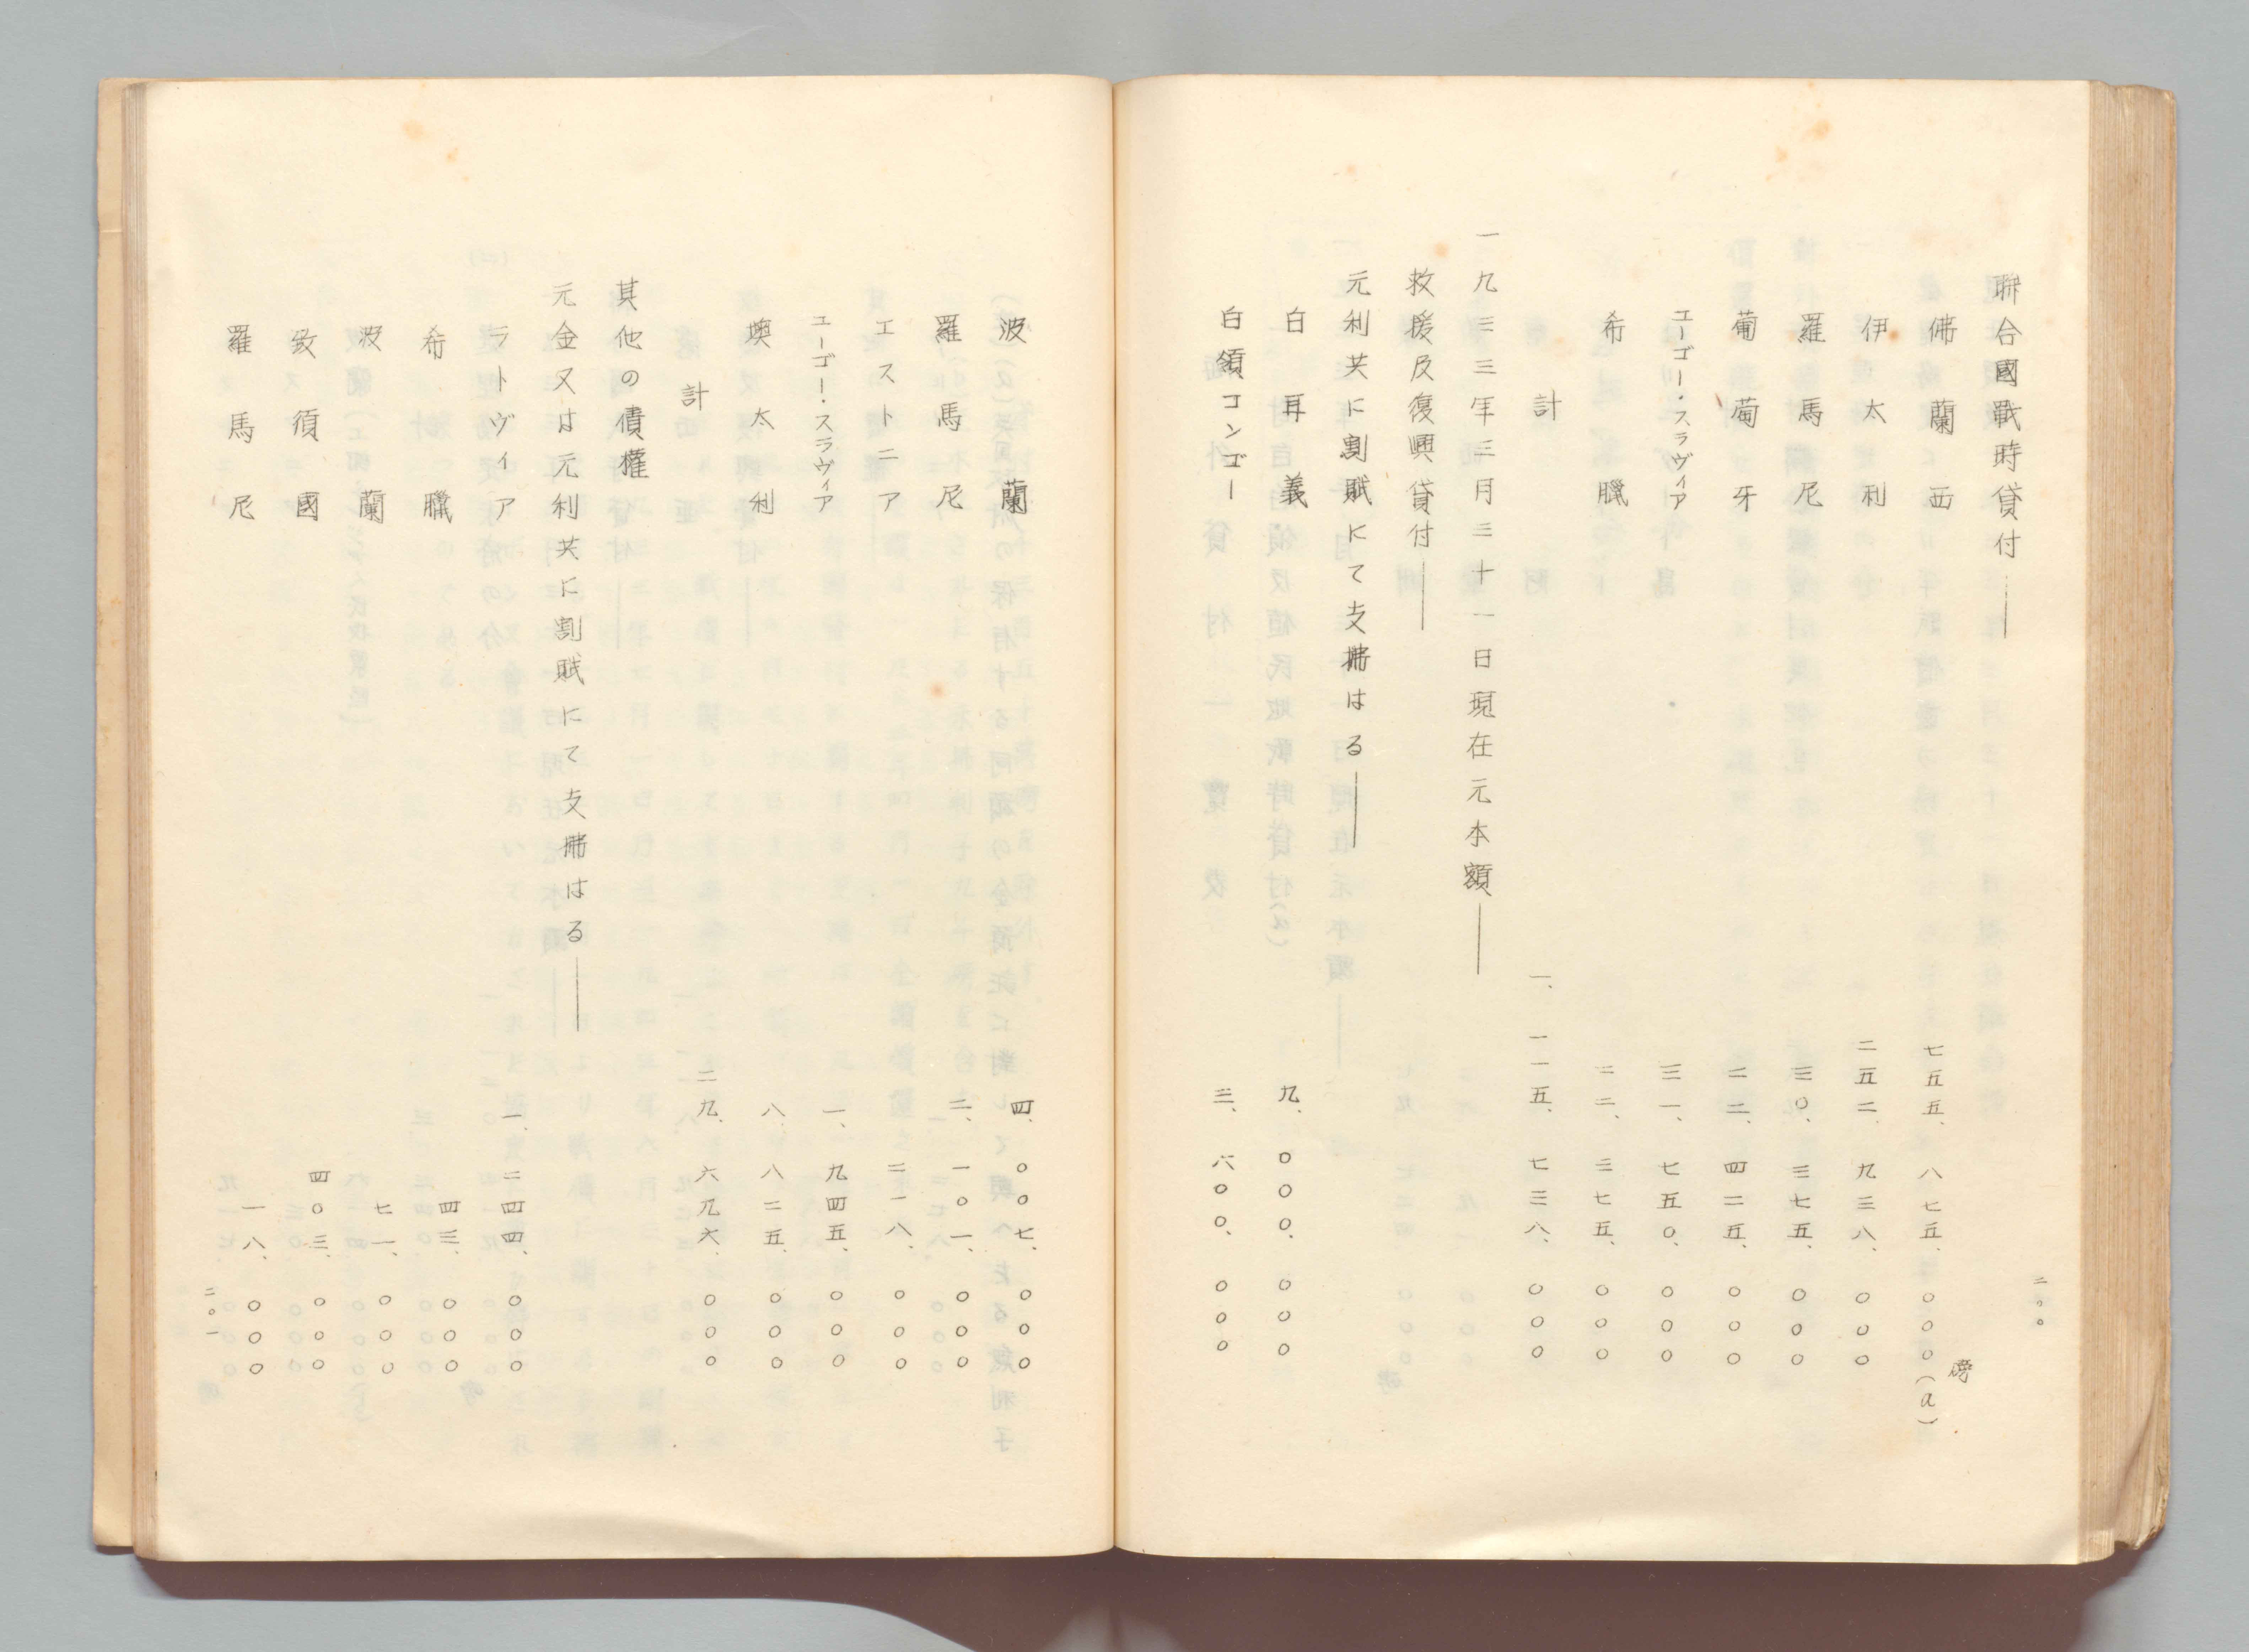 二〇〇
聯合國戰時貸付——
磅
佛蘭西 七五五、八七五、〇〇〇(a)
伊太利 二五二、九三八、〇〇〇
羅馬尼 三〇、三七五、〇〇〇
葡萄牙 二二、四二五、〇〇〇
ユーゴー・スラヴィア 三一、七五〇、〇〇〇
希臘 二二、三七五、〇〇〇
計 一、一一五、七三八、〇〇〇
一九三三年三月三十一日現在元本額——
救援及復興貸付——
元利共に割賦にて支拂はる——
白耳義 九、〇〇〇、〇〇〇
白領コンゴー 三、六〇〇、〇〇〇
波蘭 四、〇〇七、〇〇〇
羅馬尼 二、一〇一、〇〇〇
エストニア 二一八、〇〇〇
ユーゴー・スラヴィア 一、九四五、〇〇〇
墺太利 八、八二五、〇〇〇
計 二九、六九六、〇〇〇
其他の債權
元金又は元利共に割賦にて支拂はる——
ラトヴィア 一、二四四、〇〇〇
希臘 四三、〇〇〇
波蘭 七一、〇〇〇
致須國 四〇三、〇〇〇
羅馬尼 一八、〇〇〇
二〇一